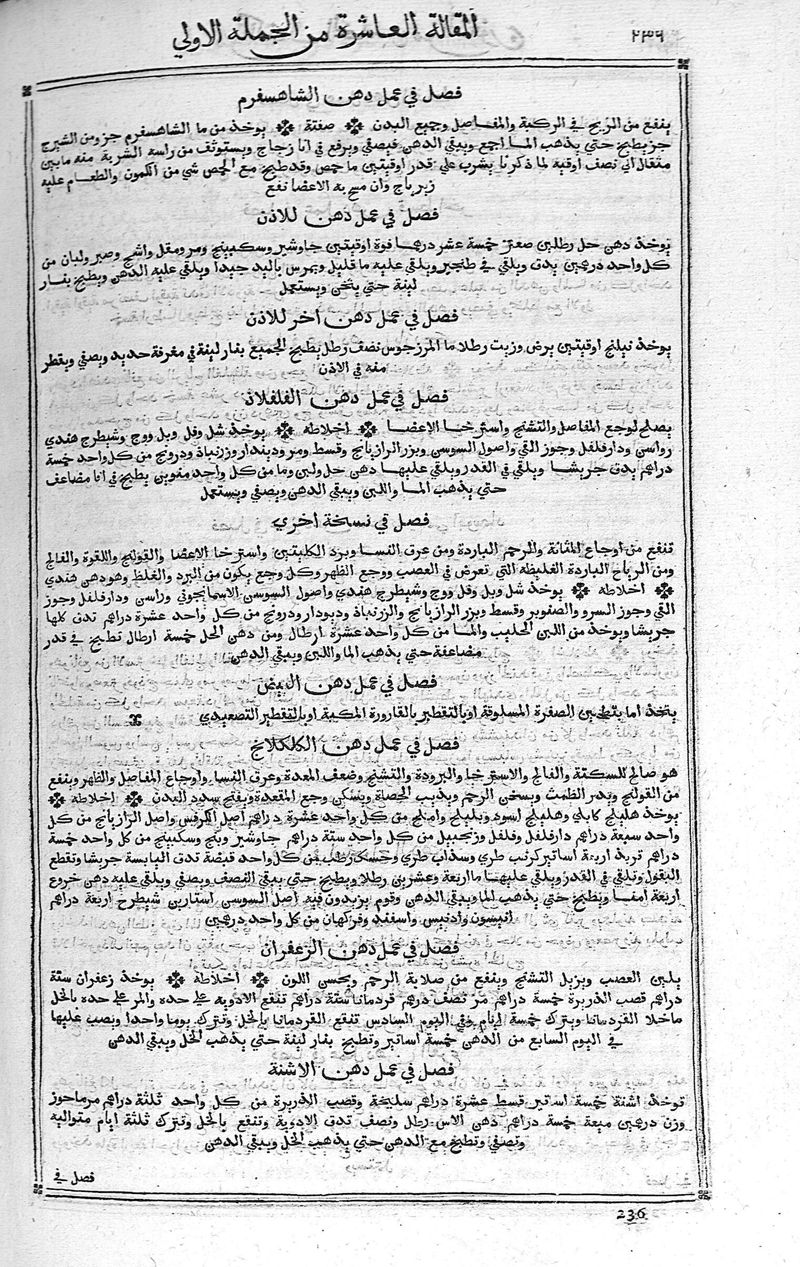 المقالة العاشرة من الجملة الاولي
٢٣٦
فصل في عمل دهن الشاهسفرم
ينفع من الريح في الركبة والمفاصل وجميع البدن ※ صفتة ※ يوخذ من ما الشاهسفرم جز ومن الشيرج
جز يطبخ حتي يذهب الما اجمع ويبقي الدهن فيصفي ويرفع في انا زجاج ويستوثف من راسه الشربة منه مابين
مثقال الي نصف اوقيه لما ذكرنا يشرب علي قدر اوقيتين ما حمص وقد طبخ مع الحمص شي من الكمون والطعام عليه
زيرباج وان مسح به الاعضا نفع
فصل في عمل دهن للاذن
يوخذ دهن حل رطلين صعتر خمسة عشر درهما فوة اوقيتين جاوشير وسكبينج ومر ومقل واشج وصبر ولبان من
كل واحد درهمين يدق ويلقي في طنجير ويلقي عليه ما قليل ويمرس باليد جيدا ويلقي عليه الدهن ويطبخ بنار
لينة حتي يثخن ويستعمل
فصل في عمل دهن اخر للاذن
يوخذ نيلنج اوقيتين يرض وزيت رطلا ما المرزجوس نصف رطل يطبخ الجميع بنار لينة في مغرفة حديد ويصفي ويقطر
منه في الاذن
فصل في عمل دهن الفلفلاذ
يصلح لوجع المفاصل والتشنج واسترخا الاعضا ※ اخلاطه ※ يوخذ شل وفل وبل ووج وشيطرج هندي
وراسن ودارفلفل وجوز القي واصول السوسن وبزر الرازيانج وقسط ومر وديندار وزرنباذ ودرونج من كل واحد خمسة
دراهم يدق جريشا ويلقي في القدر ويلقي عليها دهن حل ولبن وما من كل واحد منوين يطبخ في انا مضاعف
حتي يذهب الما واللبن ويبقي الدهن ويصفي ويستعمل
فصل في نسخة اخري
تنفع من اوجاع المثانة والرحم الباردة ومن عرق النسا وبرد الكليتين واسترخا الاعضا والقولنج واللقوة والفالج
ومن الرياح الباردة الغليظه التي تعرض في العصب ووجع الظهر وكل وجع يكون من البرد والغلظ وهو دهن هندي
※ اخلاطه ※ يوخذ شل وبل وفل ووج وشيطرج هندي واصول السوسن الاسمانجوني وراسن ودارفلفل وجوز
القي وجوز السرو والصنوبر وقسط وبزر الرازيانج والزرنباذ وديودار ودرونج من كل واحد عشرة دراهم تدق كلها
جريشا ويوخذ من اللبن الحليب والما من كل واحد عشرة ارطال ومن دهن الحل خمسة ارطال تطبخ في قدر
مضاعفة حتي يذهب الما واللبن ويبقي الدهن
فصل في عمل دهن البيض
يتخذ اما بتطجين الصفرة المسلوقة او بالتقطير بالقارورة المكبة او بالتقطير التصعيدي ※
فصل في عمل دهن الكلكلانج
هو صالح للسكتة والفالج والاسترخا والبرودة والتشنج وضعف المعدة وعرق النسا واوجاع المفاصل والظهر وينفع
من القولنج ويدر الطمث ويسخن الرحم ويذيب الحصاة ويسكن وجع المقعدة ويفتح سدود البدن ※ اخلاطه ※
يوخذ هليلج كابلي وهليلج اسود وبليلج واملج من كل واحد عشرة دراهم اصل الكرفس واصل الرازيانج من كل
واحد سبعة دراهم دارفلفل وفلفل وزنجبيل من كل واحد ستة دراهم جاوشير وبنج وسكبينج من كل واحد خمسة
دراهم تربد اربعة اساتير كرنب طري وسذاب طري وحسك رطب من كل واحد قبضة تدق اليابسة جريشا وتقطع
البقول وتلقي في القدر ويلقي عليهما ما اربعة وعشرين رطلا ويطبخ حتي يبقي النصف ويصفي ويلقي عليه دهن خروع
اربعة امنا ويطبخ حتي يذهب الما ويبقي الدهن وقوم يزيدون فيه اصل السوسن استارين شيطرج اربعة دراهم
انيسون وادنيس واسفند وفركهان من كل واحد درهمين
فصل في عمل دهن الزعفران
يلين العصب ويزيل التشنج وينفع من صلابة الرحم ويحسن اللون ※ اخلاطه ※ يوخذ زعفران ستة
دراهم قصب الذريرة خمسة دراهم مر نصف درهم قردمانا ستة دراهم تنقع الادوية علي حده والمر علي حده بالخل
ماخلا القردمانا ويترك خمسة ايام وفي اليوم السادس تنقع القردمانا بالخل وتترك يوما واحدا ويصب عليها
في اليوم السابع من الدهن خمسة اساتير وتطبخ بنار لينة حتي يذهب الخل ويبقي الدهن
فصل في عمل دهن الاشنة
توخذ اشنة خمسة اساتير قسط عشرة دراهم سليخة وقصب الذريرة من كل واحد ثلثة دراهم مرماحوز
وزن درهمين ميعة خمسة دراهم دهن الاس رطل ونصف تدق الادوية وتنقع بالخل وتترك ثلثة ايام متواليه
وتصفي وتطبخ مع الدهن حتي يذهب الخل ويبقي الدهن
فصل في
236